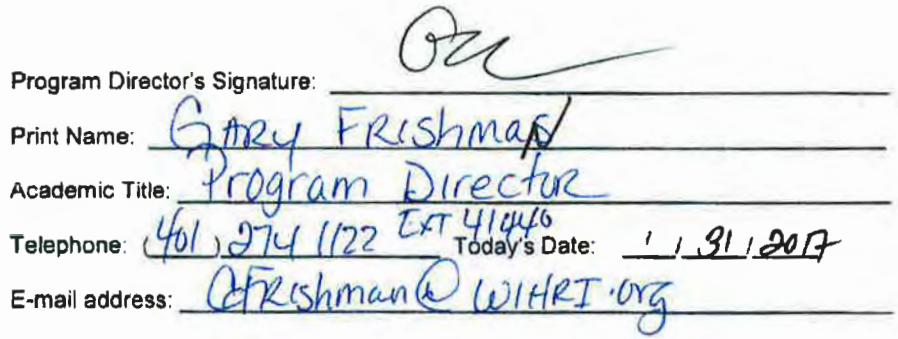 Program Director's Signature:
Print Name: GARY FRishmaN
Academic Title: Program Director
Telephone: (401) 274 1122 EXT 41440 Today's Date: 1/31/2017
E-mail address: GFRishman@WIHRI.org